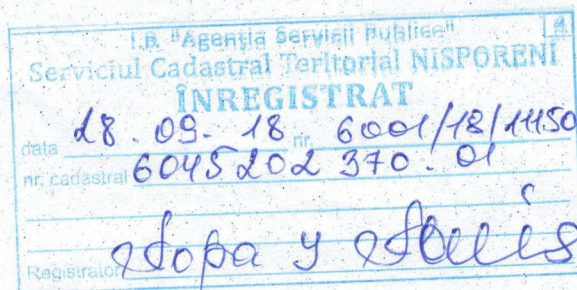 I.P. "Agenția Servicii Publice" 4
Serviciul Cadastral Teritorial NISPORENI
ÎNREGISTRAT
data 28.09.18 nr 6001/18/11150
nr. cadastral 6045202370.01
Registrator Popa